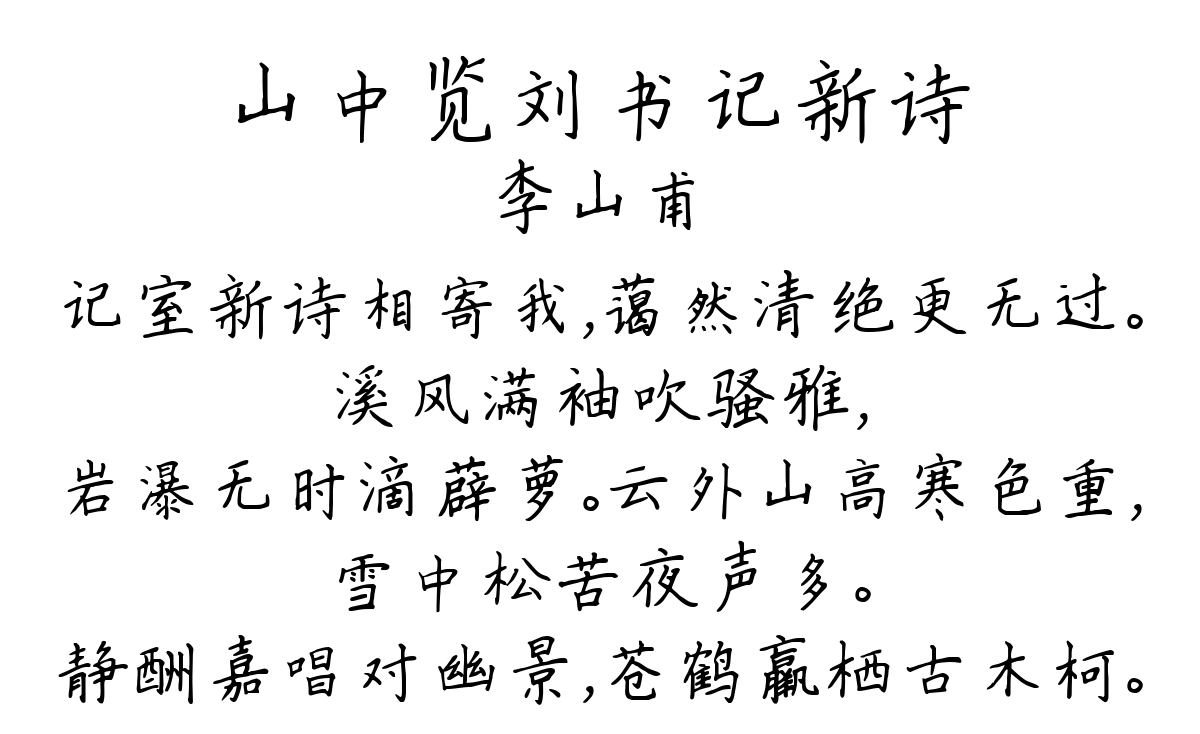 山中览刘书记新诗
李山甫
记室新诗相寄我,蔼然清绝更无过。
溪风满袖吹骚雅,
岩瀑无时滴薜萝。云外山高寒色重,
雪中松苦夜声多。
静酬嘉唱对幽景,苍鹤羸栖古木柯。